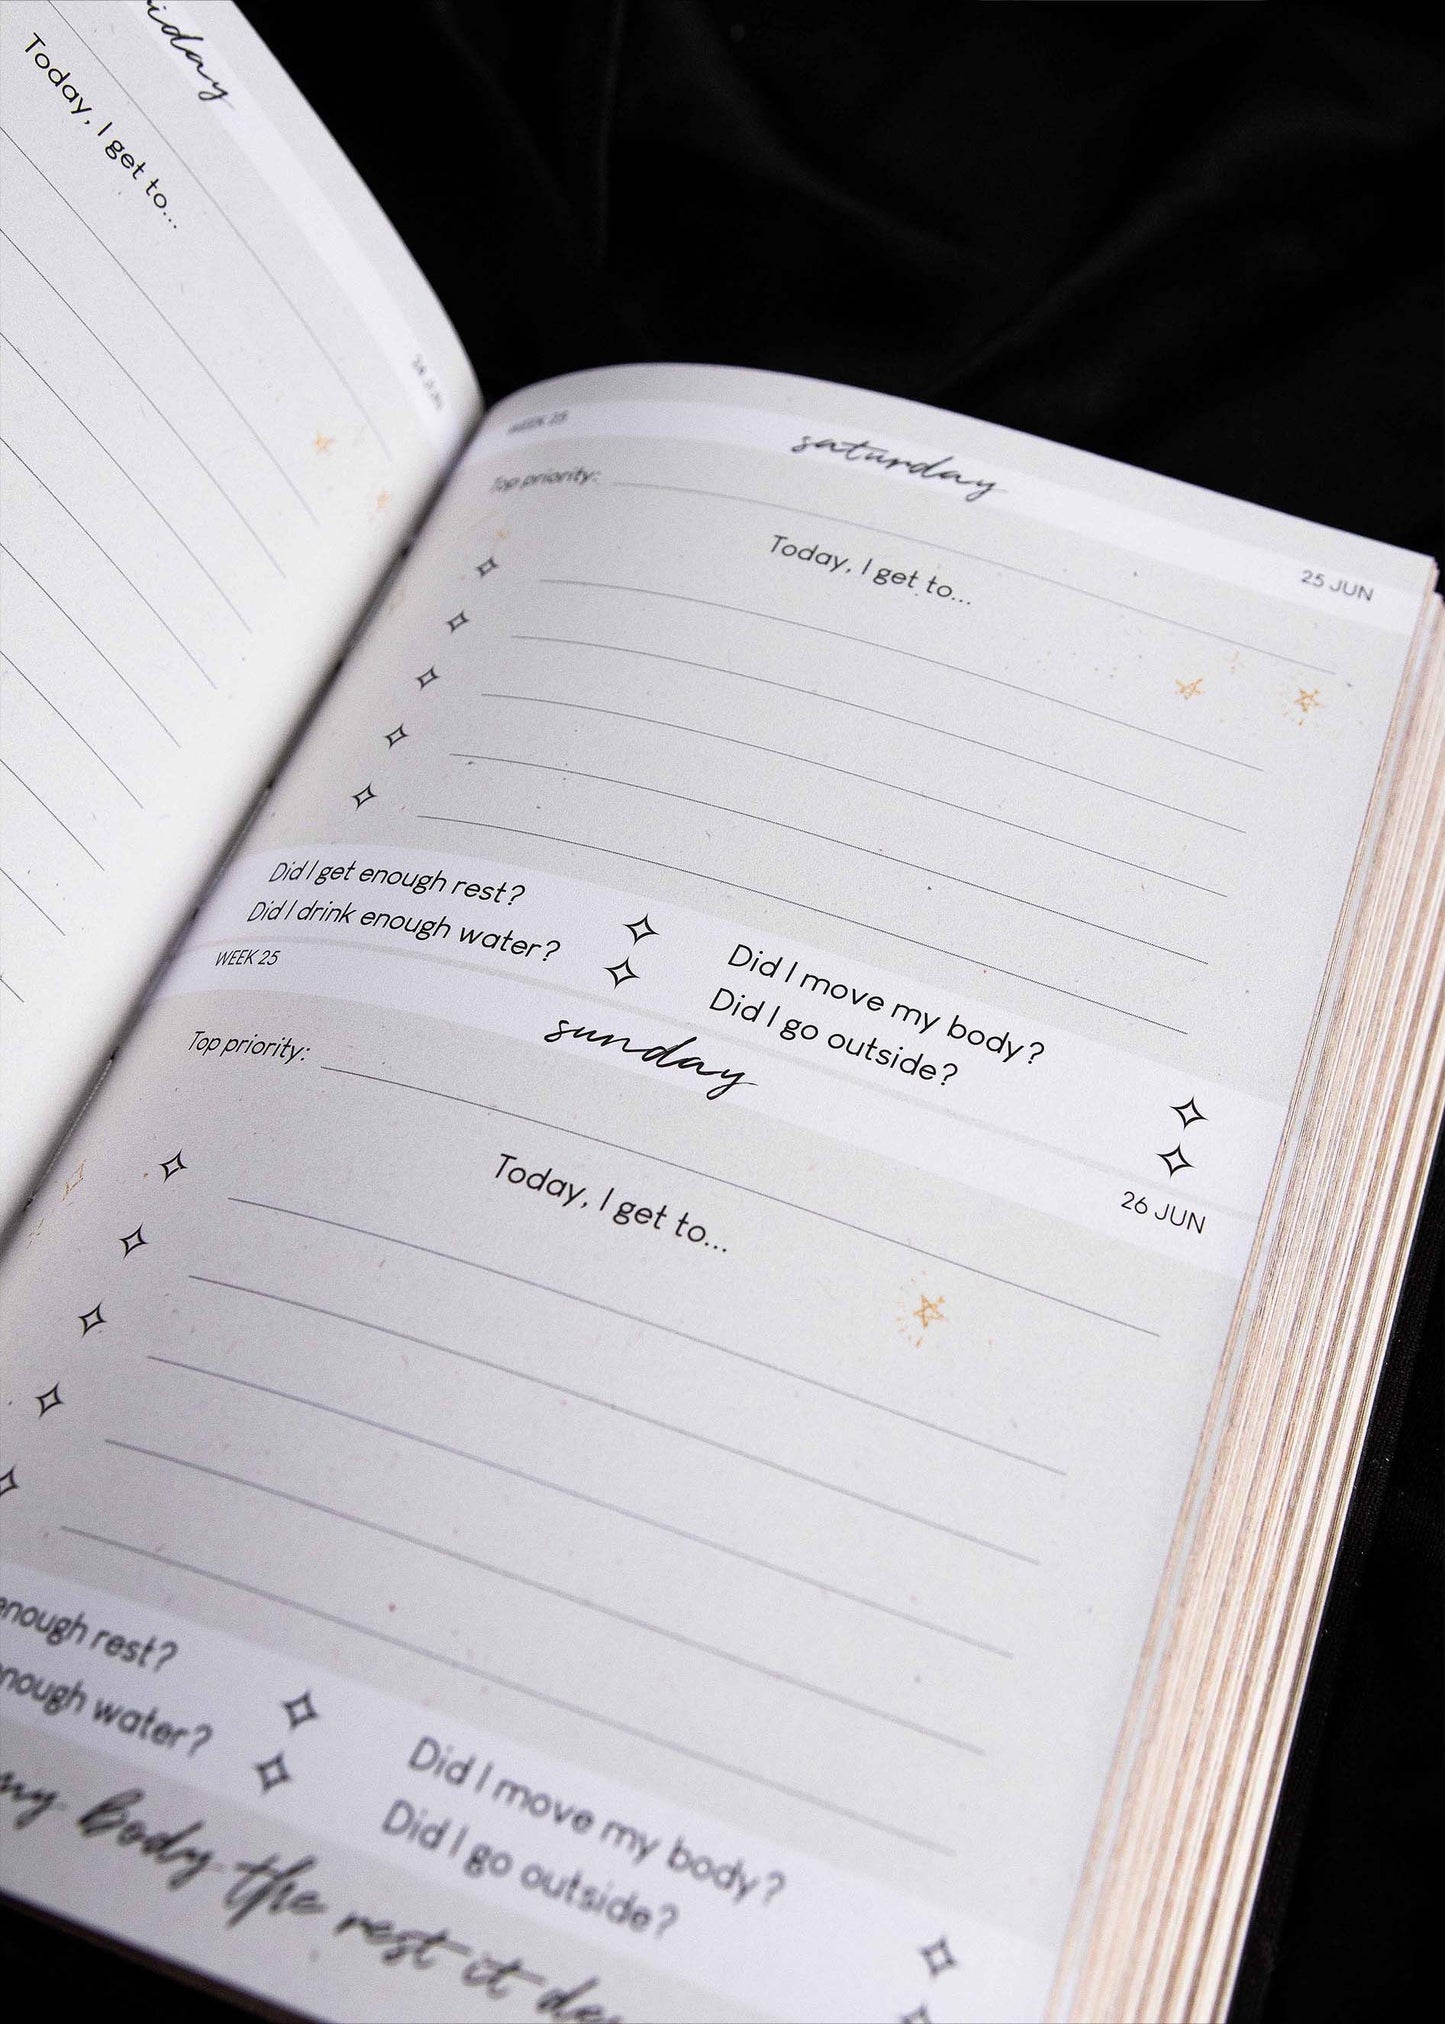 Today, I get to...
24 JUN
WEEK 25
saturday
25 JUN
Top priority:
Today, I get to...
Did I get enough rest?
Did I drink enough water?
Did I move my body?
Did I go outside?
WEEK 25
sunday
26 JUN
Top priority:
Today, I get to...
enough rest?
enough water?
Did I move my body?
Did I go outside?
my body the rest it